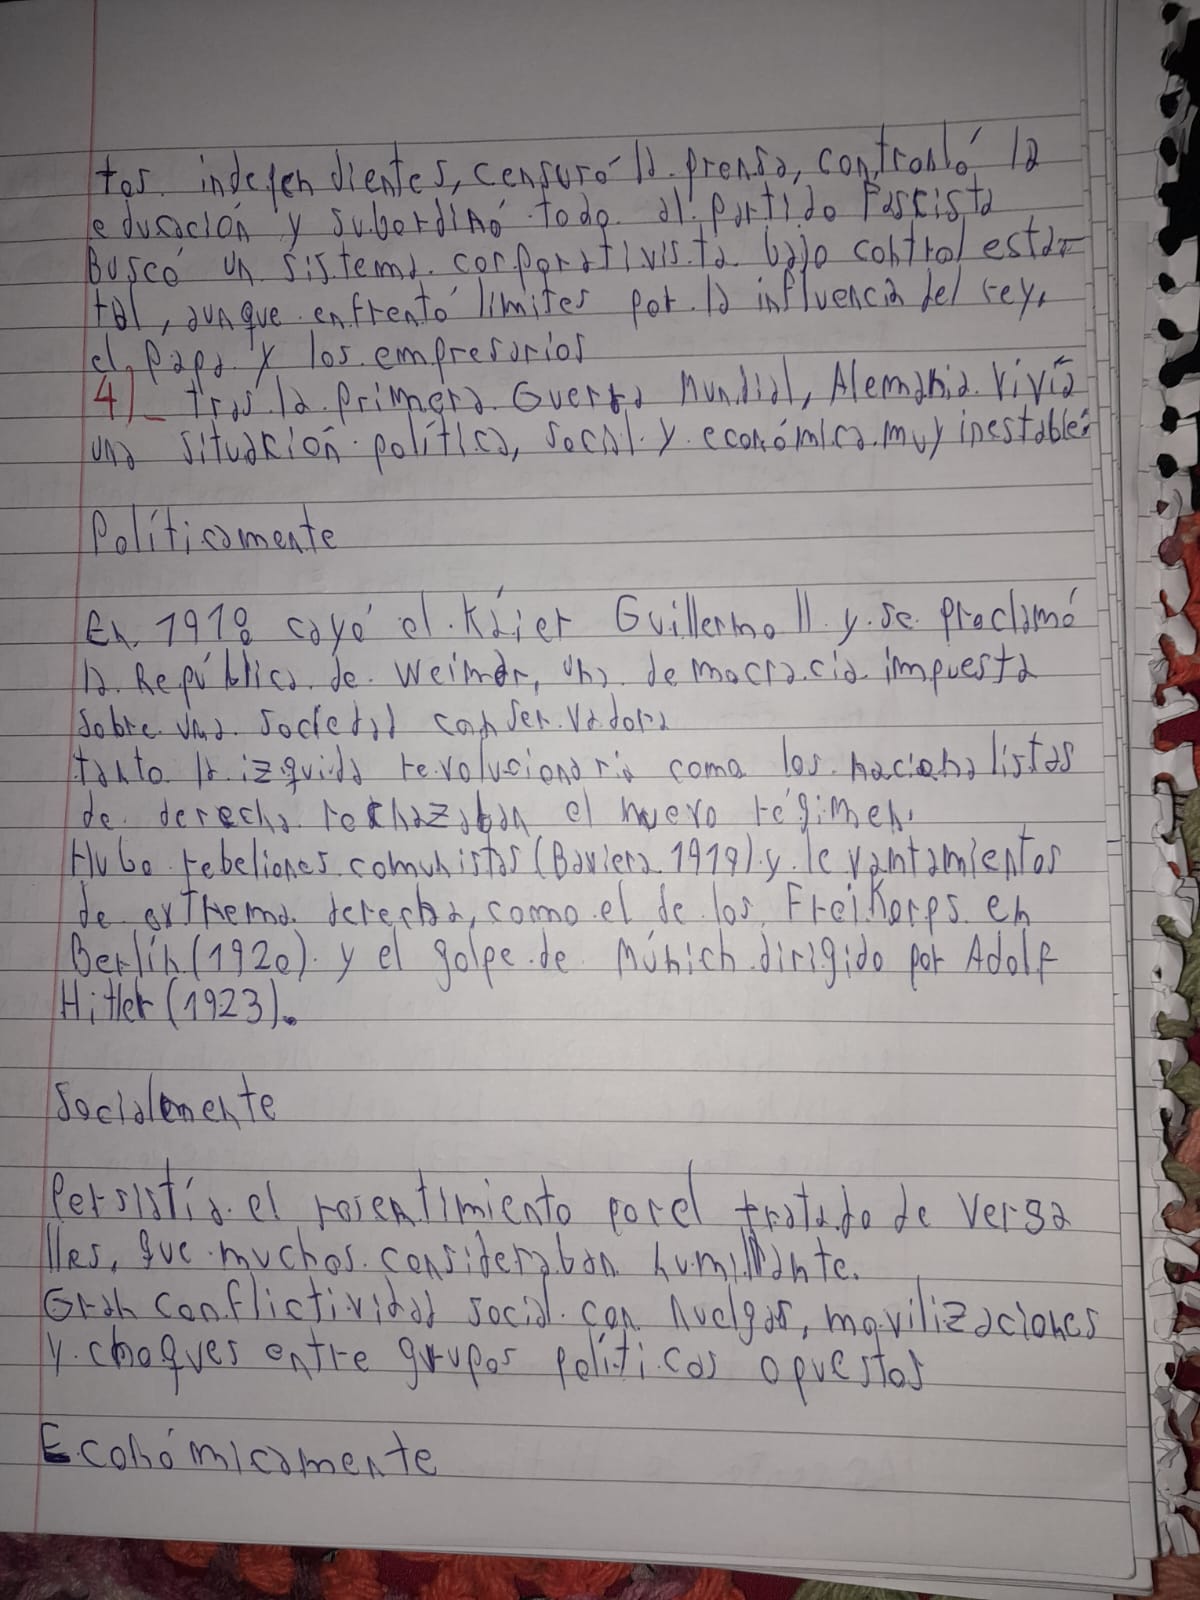 tos. independientes, censuró la prensa, controló la
educación y subordinó todo al partido Fascista
Buscó un sistema corporativista bajo control esta-
tal, aunque enfrentó límites por la influencia del rey,
el papa y los empresarios
4)- tras la primera Guerra Mundial, Alemania vivía
una situación política, social y económica muy inestable:
Políticamente
En 1918 cayó el Káier Guillermo II y se proclamó
la República de Weimar, una democracia impuesta
sobre una sociedad conservadora
tanto la izquida revolucionaria como los nacionalistas
de derecha rechazaban el nuevo régimen.
Hubo rebeliones comunistas (Baviera 1919) y levantamientos
de extrema derecha, como el de los Freikorps en
Berlín (1920) y el golpe de Múnich dirigido por Adolf
Hitler (1923).
Socialmente
Persistía el resentimiento por el tratado de Versa
lles, que muchos consideraban humillante.
Gran conflictividad social con huelgas, movilizaciones
y choques entre grupos políticos opuestos
Económicamente